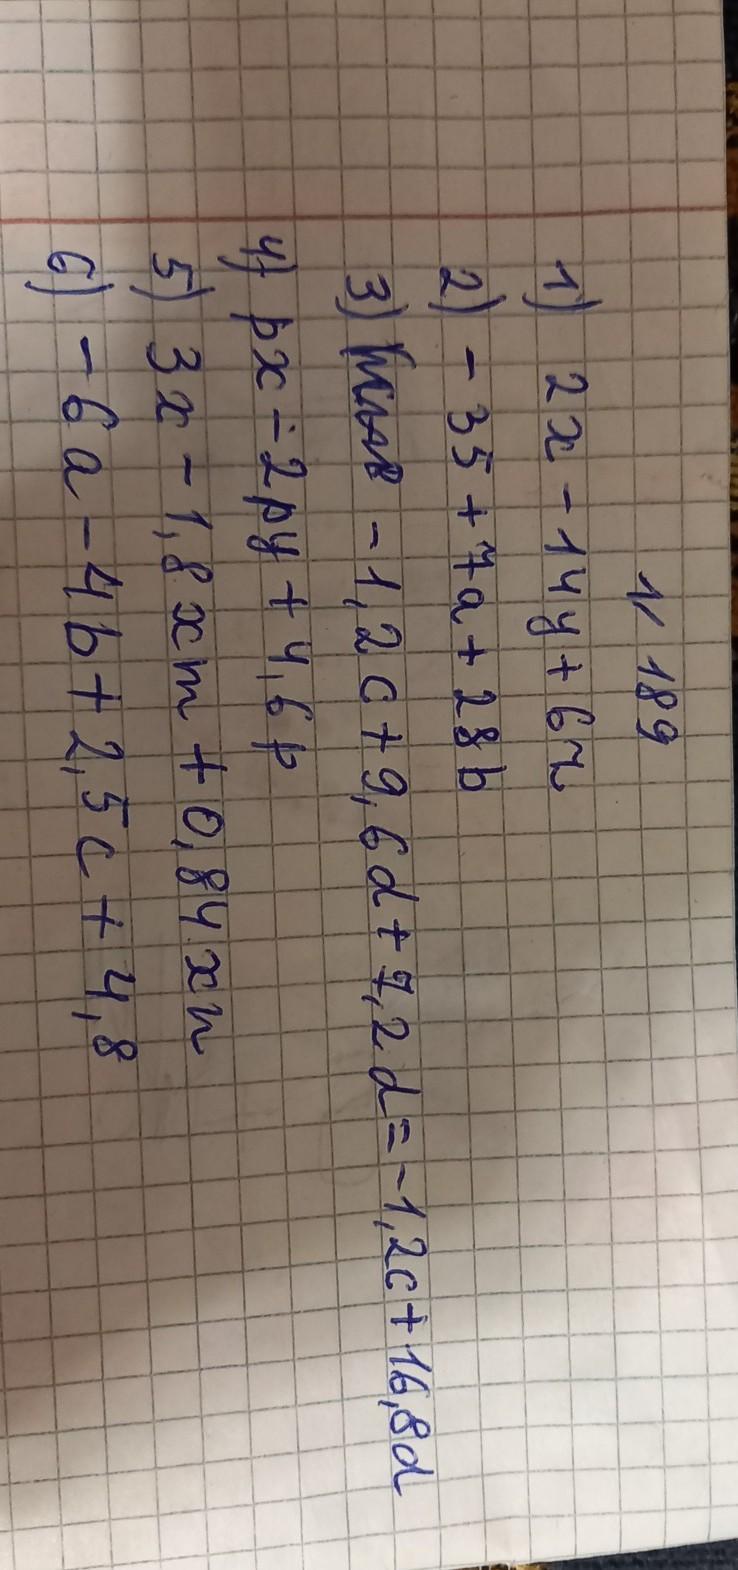 № 189
1) 2x - 14y + 6z
2) - 35 + 7a + 28b
3) - 1,2c + 9,6d + 7,2d = - 1,2c + 16,8d
4) px - 2py + 4,6p
5) 3x - 1,8xm + 0,84xn
6) - 6a - 4b + 2,5c + 4,8